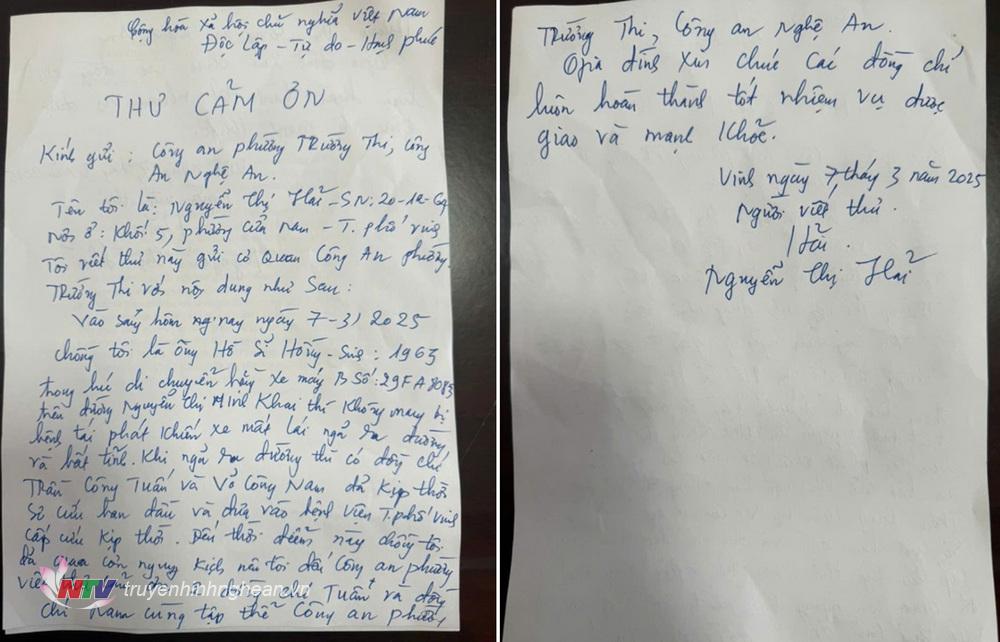 Cộng hòa xã hội chủ nghĩa việt Nam
Độc Lập - Tự do - Hạnh phúc
THƯ CẢM ƠN
Kính gửi: Công an phường Trường Thi, công
An Nghệ An.
Tên tôi là: Nguyễn Thị Hải - SN: 20-12-69
Nơi ở: Khối 5, phường cửa Nam - T. phố vinh
Tôi viết thư này gửi cơ Quan Công An phường
Trường Thi với nội dung như Sau:
Vào sáng hôm nay ngày 7-3, 2025
chồng tôi là ông Hồ Sĩ Hồng - Sinh: 1963
trong lúc di chuyển bằng xe máy B Số: 29FA 8083
trên đường Nguyễn Thị Minh Khai thì Không may bị
bệnh tái phát khiến xe mất lái ngã ra đường
và bất tỉnh. Khi ngã ra đường thì có đồng chí
Trần Công Tuấn và Võ Công Nam đã Kịp thời
Sơ cứu ban đầu và đưa vào bệnh viện T.phố vinh
cấp cứu kịp thời. Đến thời điểm này chồng tôi
đã qua cơn nguy kịch nên tôi đến Công an phường
viết thư chí Tuấn và đồng
chí Nam cùng tập thể Công an phường
NTV truyenhinhnghean.vn
Trường Thi, Công an Nghệ An.
Gia đình xin chúc các đồng chí
luôn hoàn thành tốt nhiệm vụ được
giao và mạnh khỏe.
Vinh ngày 7, tháng 3 năm 2025
Người viết thư.
Hải.
Nguyễn Thị Hải